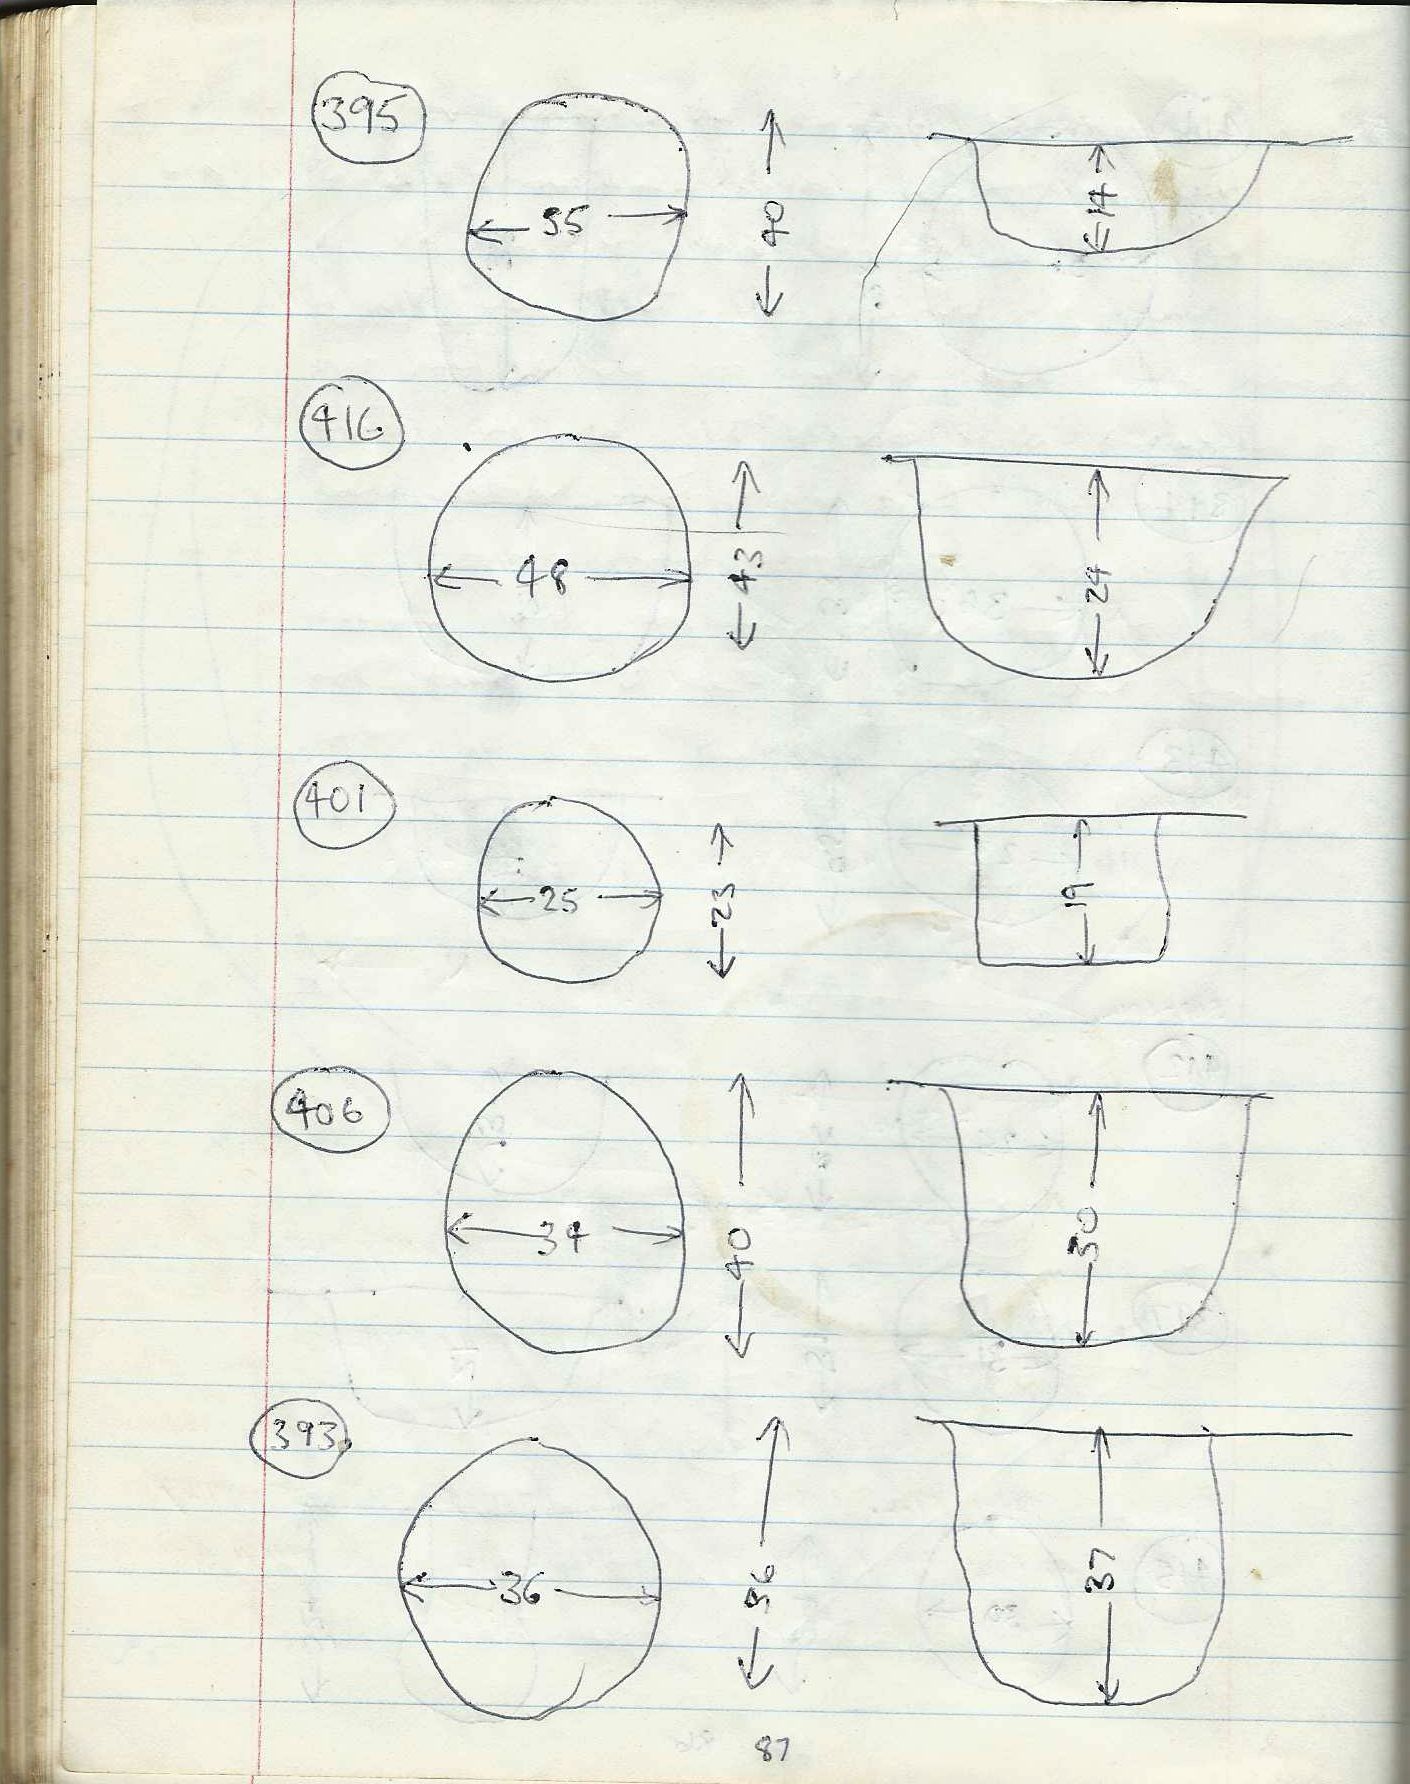 395
35
40
14
416
48
43
24
401
25
23
19
406
34
40
30
393
36
36
37
87